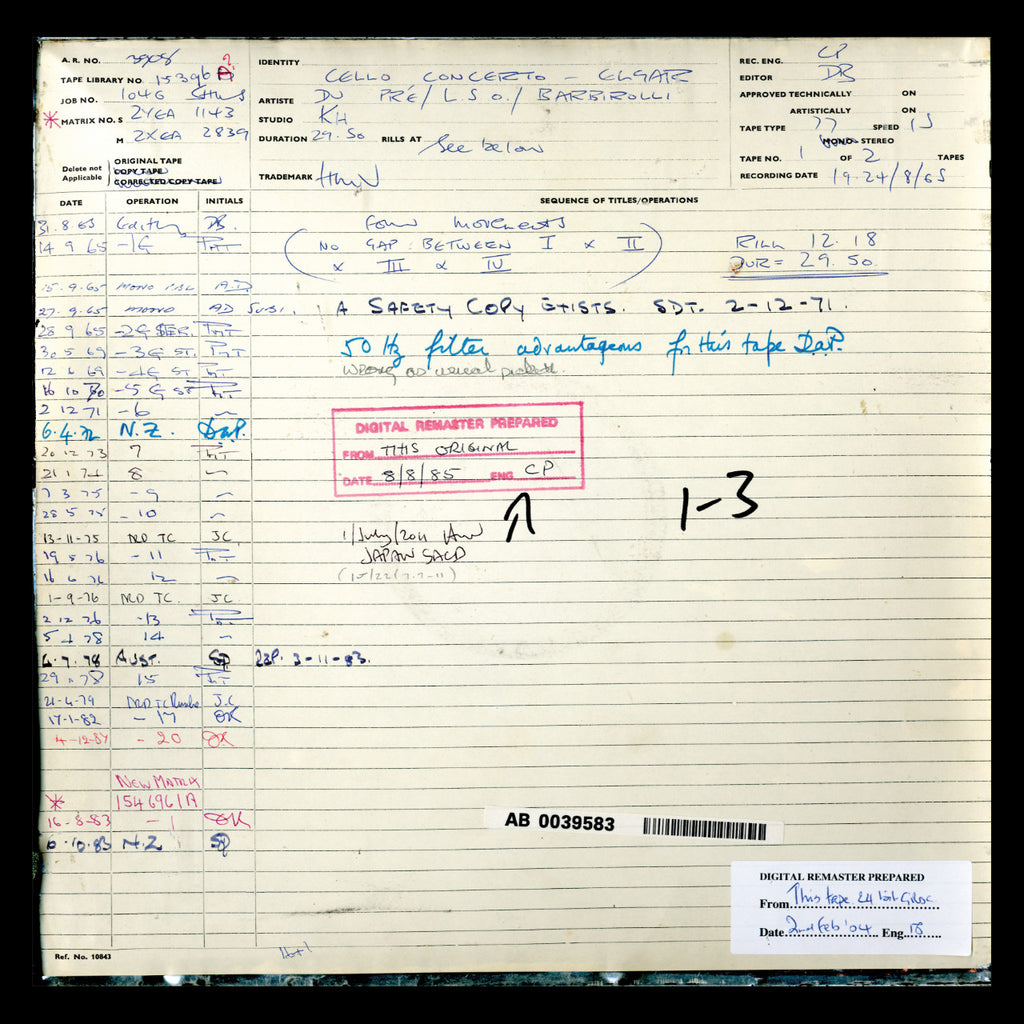 A.R. NO.
TAPE LIBRARY NO. 15396
JOB NO. 1046
* MATRIX NO. S 2YEA 1143
M 2XEA 2839
Delete not Applicable
ORIGINAL TAPE
COPY TAPE
CORRECTED COPY TAPE
IDENTITY CELLO CONCERTO – ELGAR
ARTISTE DU PRÉ/L.S.O./BARBIROLLI
STUDIO KH
DURATION 29.50 RILLS AT See below
TRADEMARK HMV
REC. ENG. CP
EDITOR DB
APPROVED TECHNICALLY ON
ARTISTICALLY ON
TAPE TYPE 77 SPEED 15
MONO-STEREO
TAPE NO. 1 OF 2 TAPES
RECORDING DATE 19.24/8/65
DATE OPERATION INITIALS SEQUENCE OF TITLES/OPERATIONS
31.8.65 Editing DB. Four movements
14 9 65 -1G (NO GAP BETWEEN I x II RILL 12.18
x III x IV) DUR = 29.50
15.9.65 MONO A.D
27.9.65 MONO AD A SAFETY COPY EXISTS. SDT. 2-12-71.
28 9 65 -2G STER.
30 5 69 -3G ST. 50 Hz filter advantageous for this tape DaP.
12 6 69 -4G ST WRONG as usual
16 10 70 -5G ST
2 12 71 -6
6.4.72 N.Z. DaP.
20 12 73 7
21 1 74 8
7 3 75 -9
28 5 75 -10
13-11-75 TC JC
19 5 76 -11
16 6 76 12
1-9-76 TC. JC
2 12 76 -13
5 4 78 14
6.7.78 AUST. SP 3-11-83.
29 78 15
21-4-79 TC J.C
17-1-82 -17 OK
4-12-84 -20 OK
DIGITAL REMASTER PREPARED
FROM THIS ORIGINAL
DATE 8/8/85 ENG. CP
1-3
1/July/2011
JAPAN SACD
NEW MATRIX
* 1546961A
16-8-83 -1 OK
6.10.83 N.Z SP
AB 0039583
DIGITAL REMASTER PREPARED
From This tape 24 bit
Date 2nd Feb '04 Eng.
Ref. No. 10843